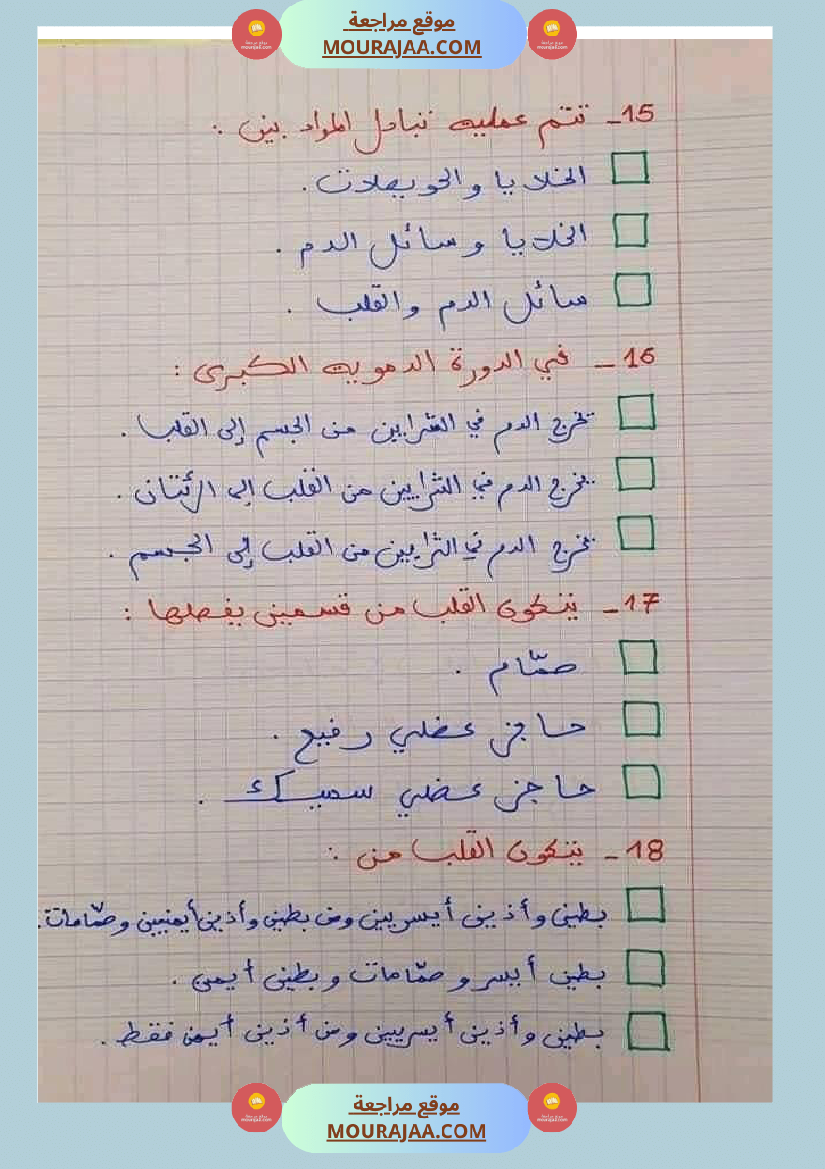 موقع مراجعة
MOURAJAA.COM
15- تتم عملية تبادل المواد بين :
الخلايا والحويصلات .
الخلايا وسائل الدم .
سائل الدم والقلب .
16- في الدورة الدموية الكبرى :
يخرج الدم في الشرايين من الجسم إلى القلب .
يخرج الدم في الشرايين من القلب إلى الرئتان .
يخرج الدم في الشرايين من القلب إلى الجسم .
17- يتكون القلب من قسمين يفصلها :
صمّام .
حاجز عضلي رفيع .
حاجز عضلي سميك .
18- يتكون القلب من :
بطين وأذين أيسريين ومن بطين وأذين أيمنيين وصمّامات .
بطين أيسر وصمّامات وبطين أيمن .
بطين وأذين أيسريين ومن أذين أيمن فقط .
موقع مراجعة
MOURAJAA.COM